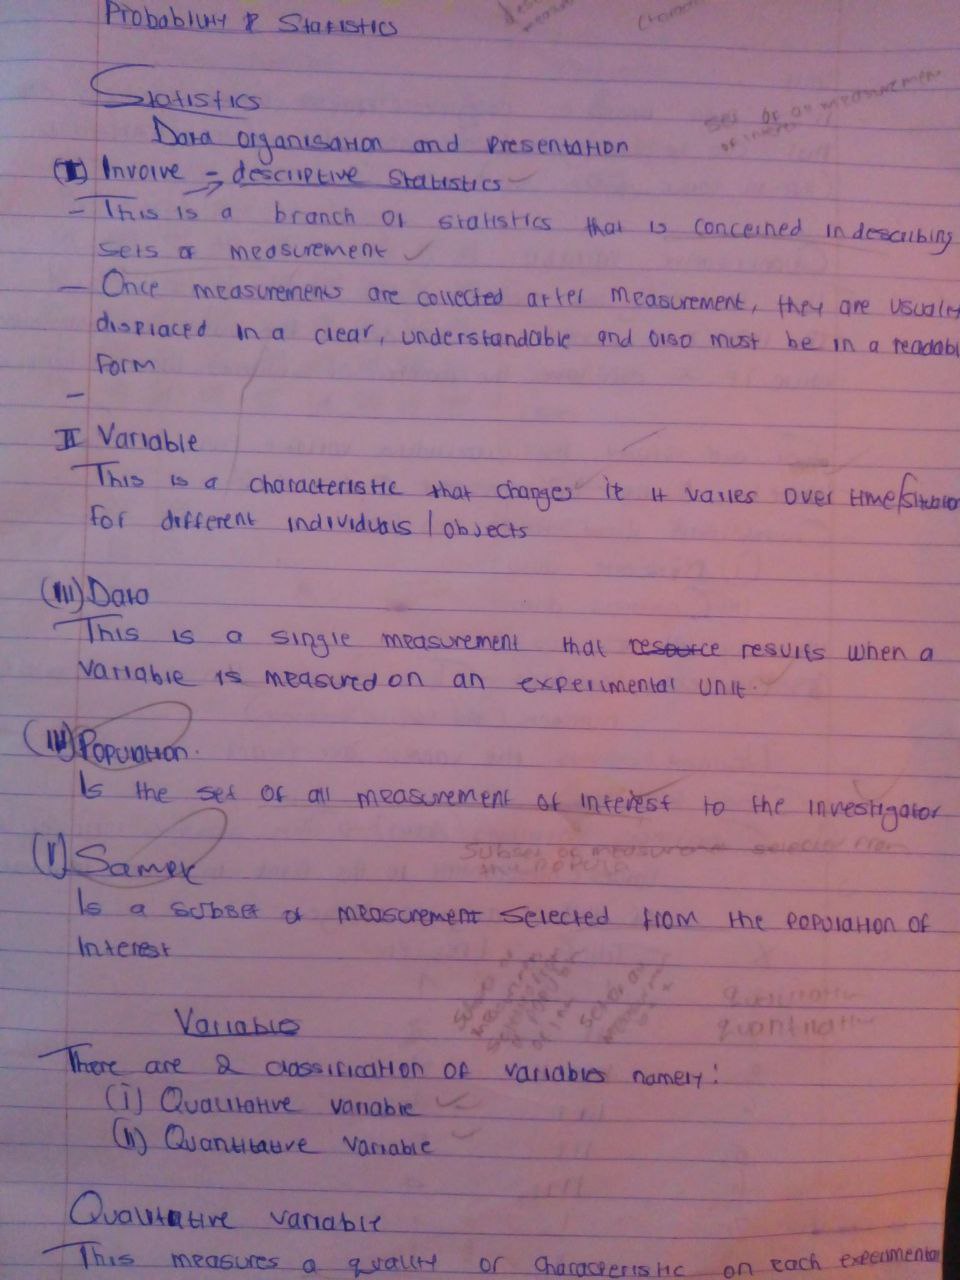 Probability & Statistics
Statistics
Data organisation and presentation
(I) Involve = descriptive statistics
- This is a branch of statistics that is concerned in describing
sets of measurement
- Once measurements are collected after measurement, they are usually
displaced in a clear, understandable and also must be in a readabl
form
-
II Variable
This is a characteristic that changes it it varies over time/situation
for different individuals / objects
(III) Data
This is a single measurement that resource results when a
variable is measured on an experimental unit.
(IV) Population.
Is the set of all measurement of interest to the investigator
Subset of measurement selected from
the popula
(V) Sample
Is a subset of measurement selected from the population of
interest
Variable
There are 2 classification of variables namely:
(i) Qualitative variable
(ii) Quantitative variable
Qualitative variable
This measures a quality or characteristic on each experimental